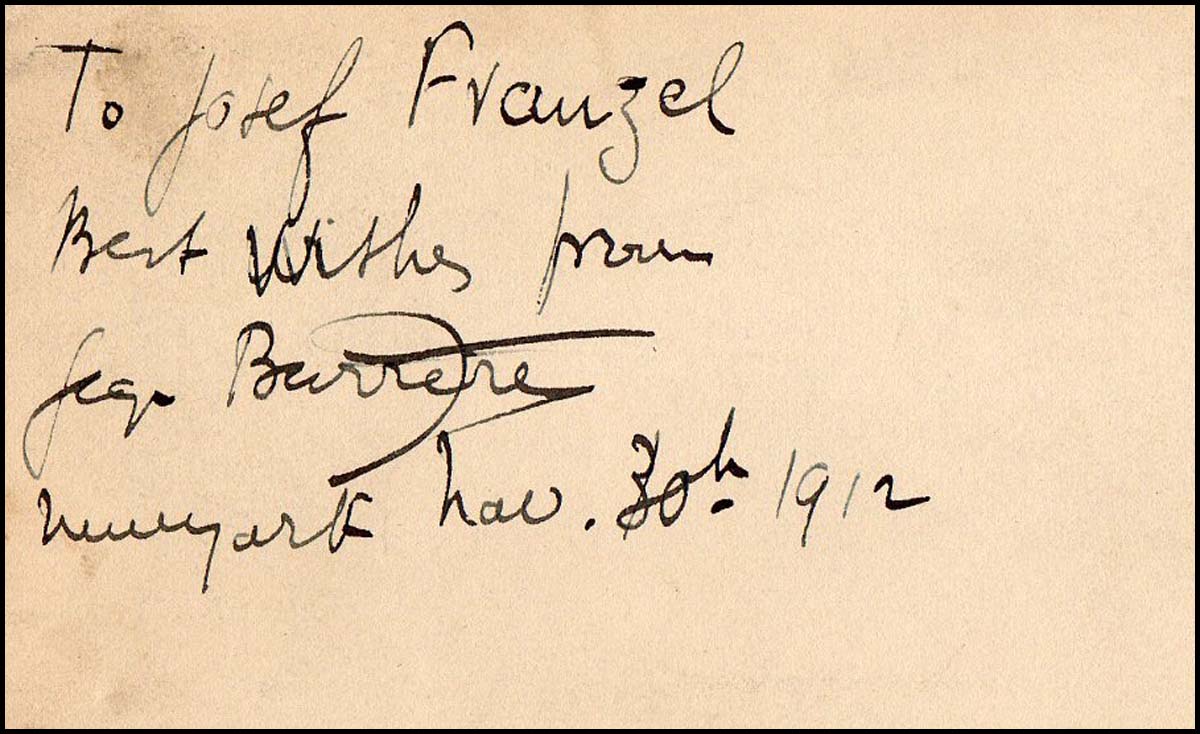 To Josef Franzel
Best Wishes from
Geo. Barrère
Newyork Nov. 30th 1912